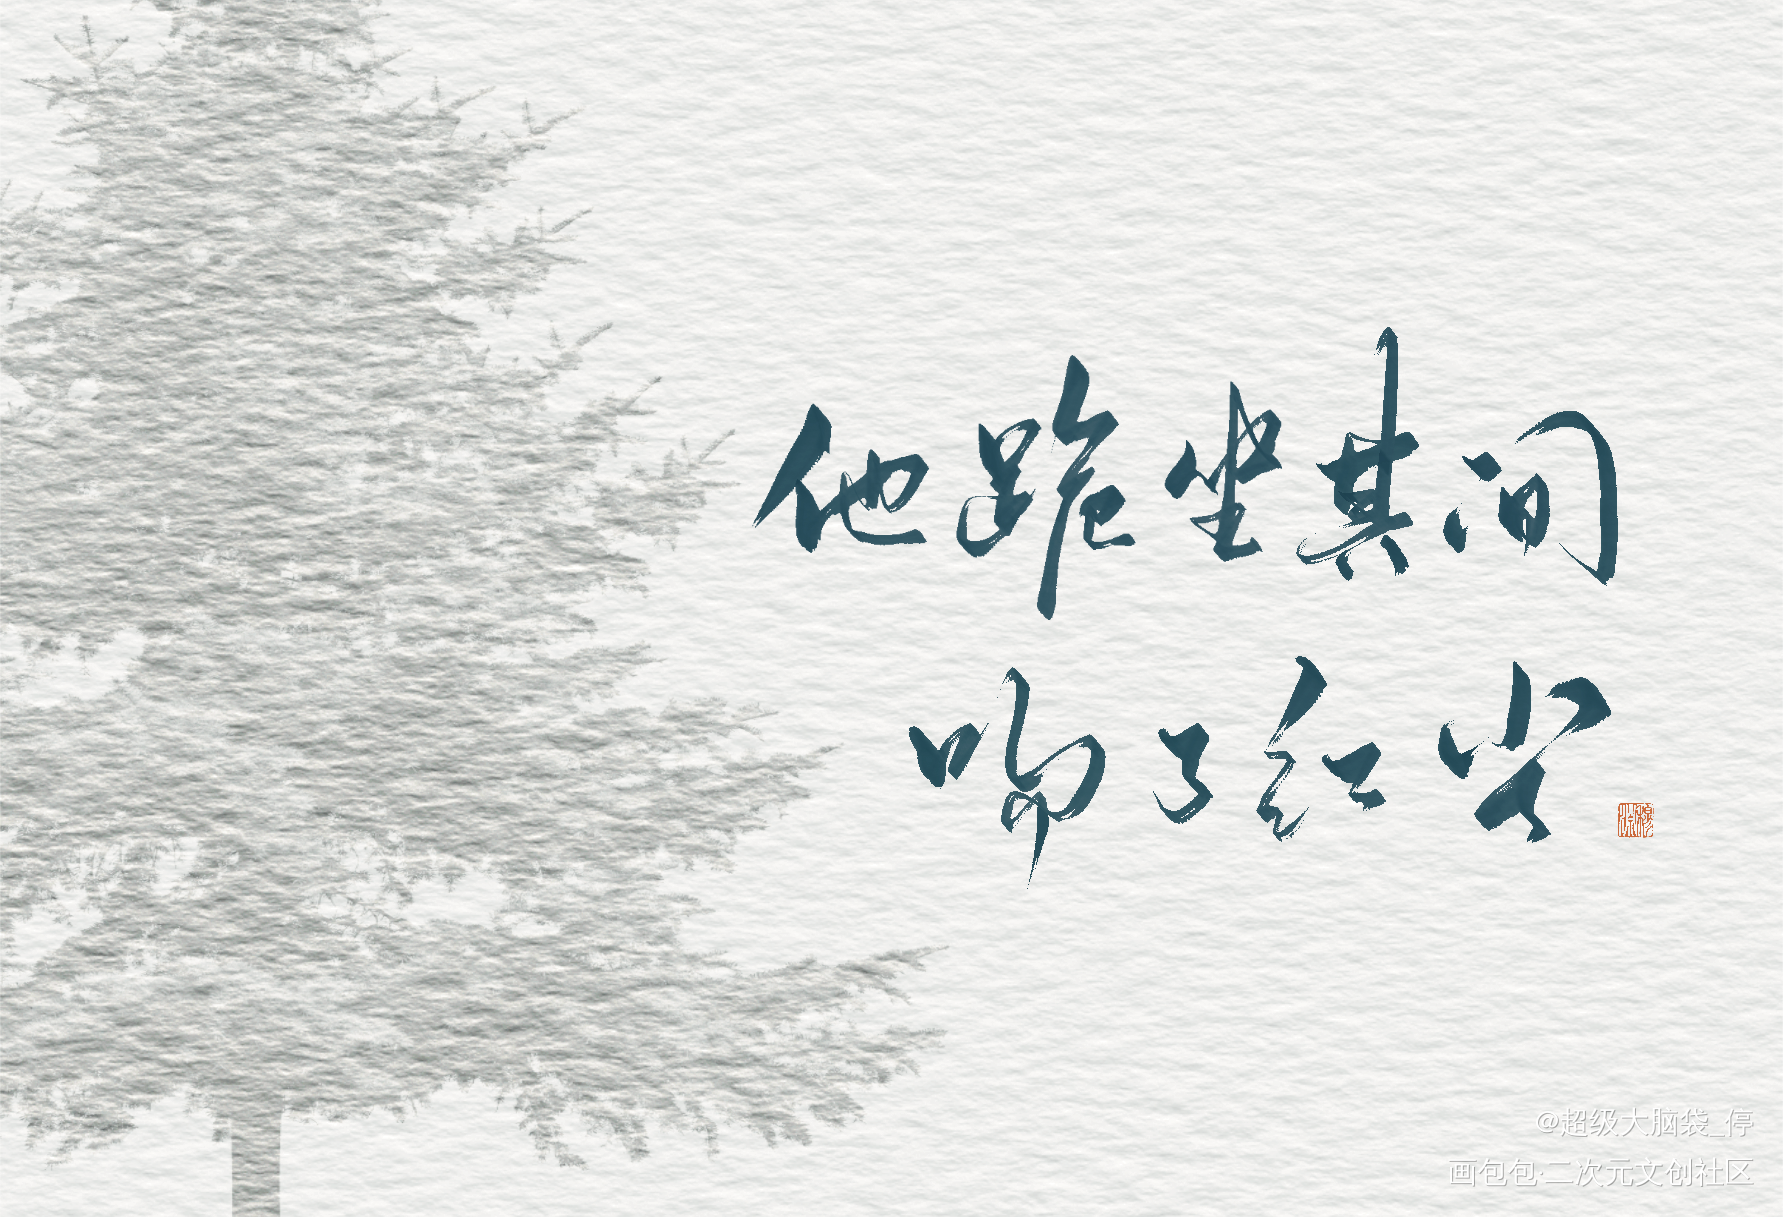 他跪坐其间
吻了红尘
@超级大脑袋_停
画包包·二次元文创社区